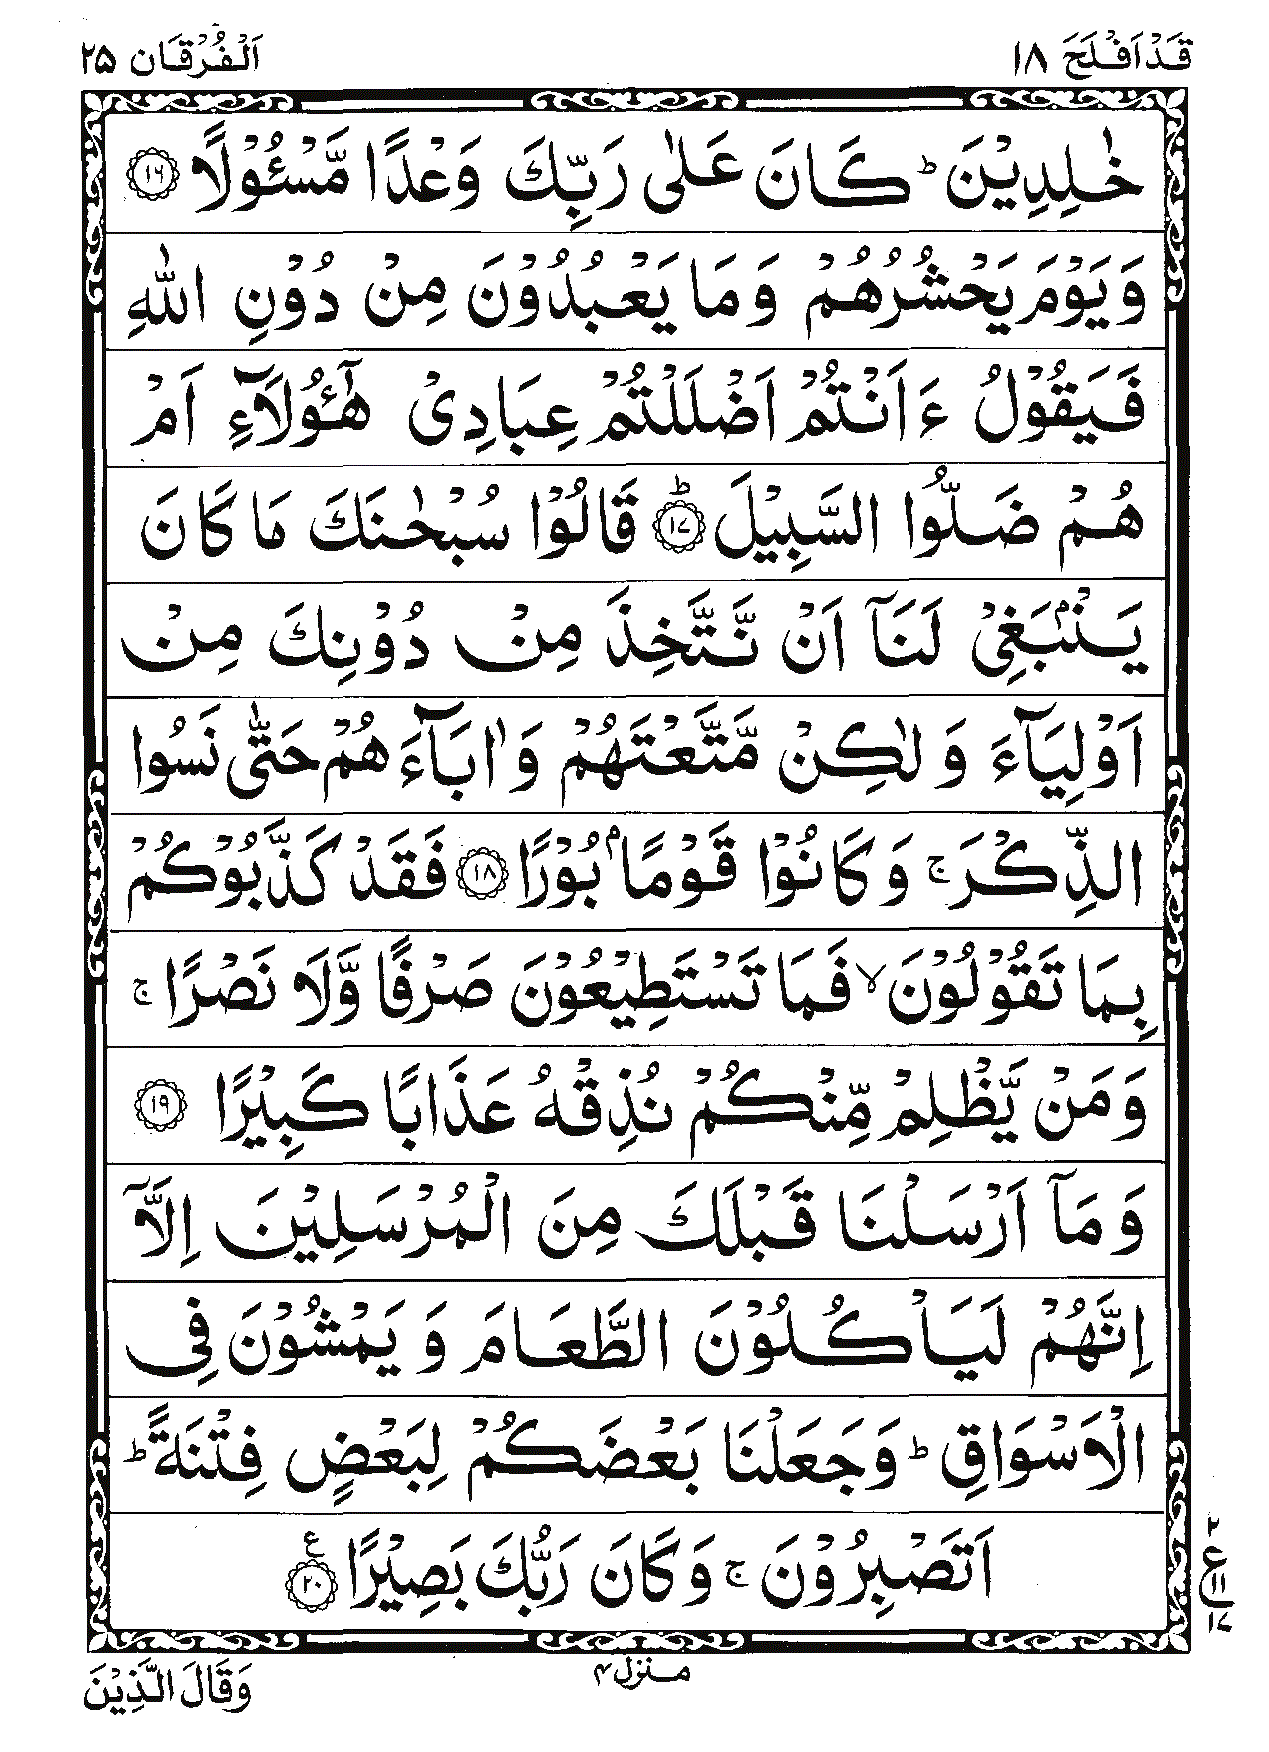 قَدْ اَفْلَحَ ١٨
اَلْفُرْقَان ٢٥
خٰلِدِيْنَ ؕ كَانَ عَلٰى رَبِّكَ وَعْدًا مَّسْـُٔوْلًا ﴿١٦﴾
وَيَوْمَ يَحْشُرُهُمْ وَمَا يَعْبُدُوْنَ مِنْ دُوْنِ اللّٰهِ
فَيَقُوْلُ ءَاَنْتُمْ اَضْلَلْتُمْ عِبَادِىْ هٰٓؤُلَآءِ اَمْ
هُمْ ضَلُّوا السَّبِيْلَ ﴿١٧﴾ؕ قَالُوْا سُبْحٰنَكَ مَا كَانَ
يَنْۢبَغِىْ لَنَآ اَنْ نَّتَّخِذَ مِنْ دُوْنِكَ مِنْ
اَوْلِيَآءَ وَلٰكِنْ مَّتَّعْتَهُمْ وَاٰبَآءَهُمْ حَتّٰى نَسُوا
الذِّكْرَ ۚ وَكَانُوْا قَوْمًاۢ بُوْرًا ﴿١٨﴾ فَقَدْ كَذَّبُوْكُمْ
بِمَا تَقُوْلُوْنَ ۙ فَمَا تَسْتَطِيْعُوْنَ صَرْفًا وَّلَا نَصْرًا ۚ
وَمَنْ يَّظْلِمْ مِّنْكُمْ نُذِقْهُ عَذَابًا كَبِيْرًا ﴿١٩﴾
وَمَآ اَرْسَلْنَا قَبْلَكَ مِنَ الْمُرْسَلِيْنَ اِلَّآ
اِنَّهُمْ لَيَاْكُلُوْنَ الطَّعَامَ وَيَمْشُوْنَ فِى
الْاَسْوَاقِ ؕ وَجَعَلْنَا بَعْضَكُمْ لِبَعْضٍ فِتْنَةً ؕ
اَتَصْبِرُوْنَ ۚ وَكَانَ رَبُّكَ بَصِيْرًا ﴿٢٠﴾ ع
٢
ع
١١
١٧
منزل ۴
وَقَالَ الَّذِيْنَ